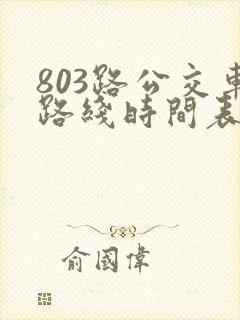 803路公交車
路綫時間表
俞國偉